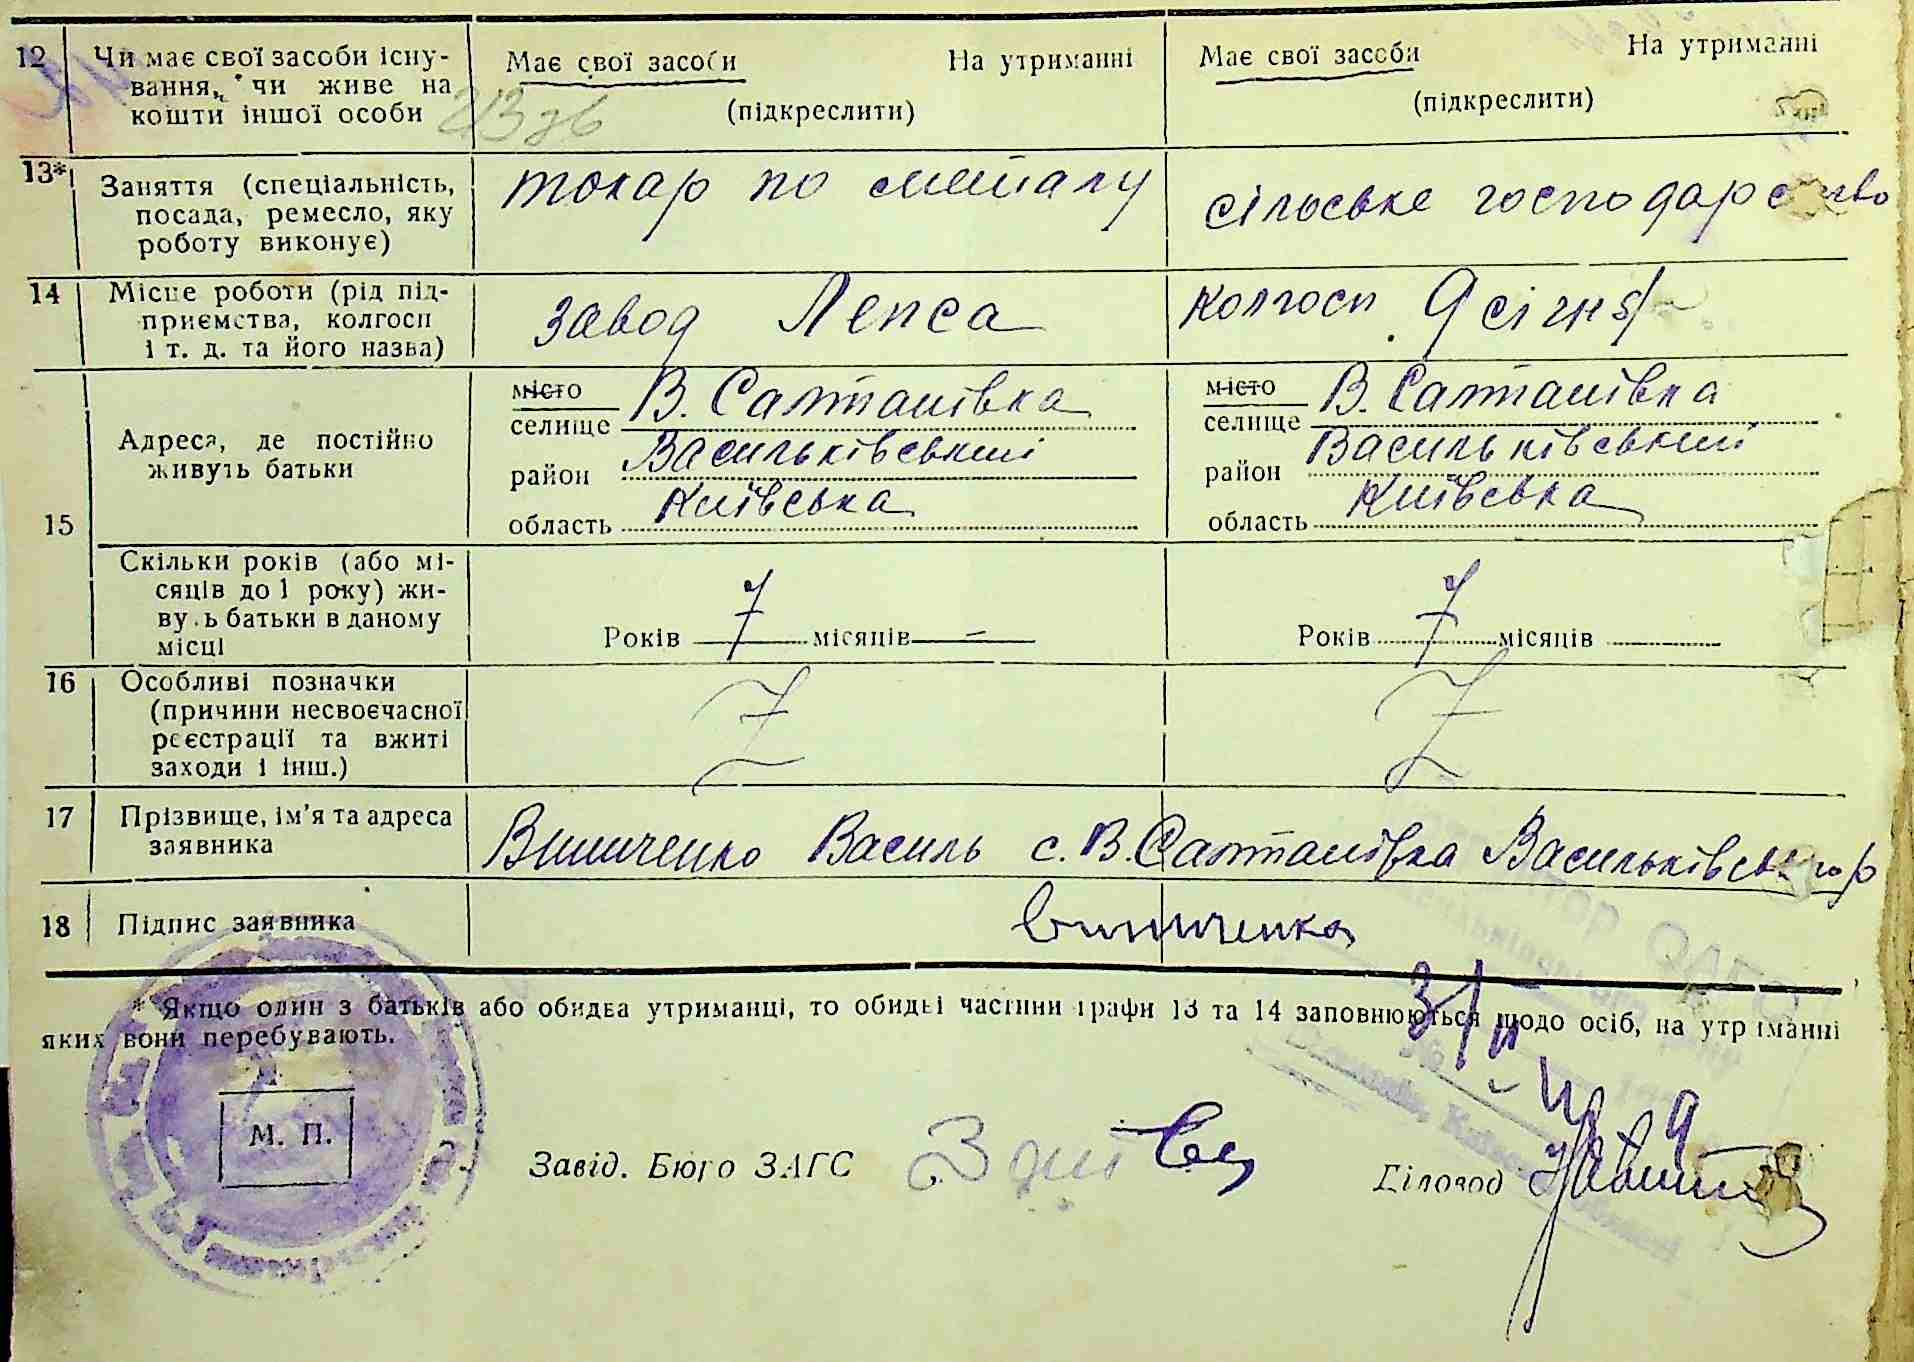 12 Чи має свої засоби існу- Має свої засоби На утриманні Має свої засоби На утриманні
вання, чи живе на
кошти іншої особи (підкреслити) (підкреслити)
13* Заняття (спеціальність, токар по металу сільське господарство
посада, ремесло, яку
роботу виконує)
14 Місце роботи (рід під- завод Лепса колгосп 9 січня
приємства, колгосп
і т. д. та його назва)
місто В. Салтанівка місто В. Салтанівка
селище селище
Адреса, де постійно Васильківський Васильківський
живуть батьки район район
Київська Київська
15 область область
Скільки років (або мі-
сяців до 1 року) жи-
вуть батьки в даному Років 7 місяців – Років 7 місяців
місці
16 Особливі позначки
(причини несвоєчасної
реєстрації та вжиті
заходи і інш.)
17 Прізвище, ім'я та адреса
заявника Винниченко Василь с. В. Салтанівка Васильківськ го р
18 Підпис заявника
* Якщо один з батьків або обидва утриманці, то обидві частини графи 13 та 14 заповнюються щодо осіб, на утриманні
яких вони перебувають.
М. П.
Завід. Бюро ЗАГС Діловод